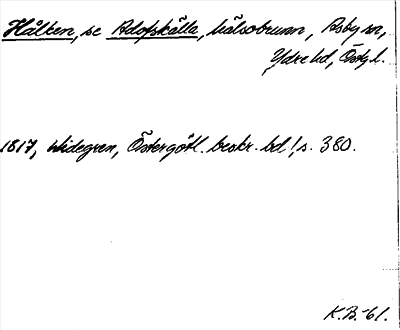 Hålken, se Adofskälla, hälsobrunn, Asby sn,
Ydre hd, Östgl.
1817, Widegren, Östergötl. beskr. bd 1, s. 380.
K.B. -61.